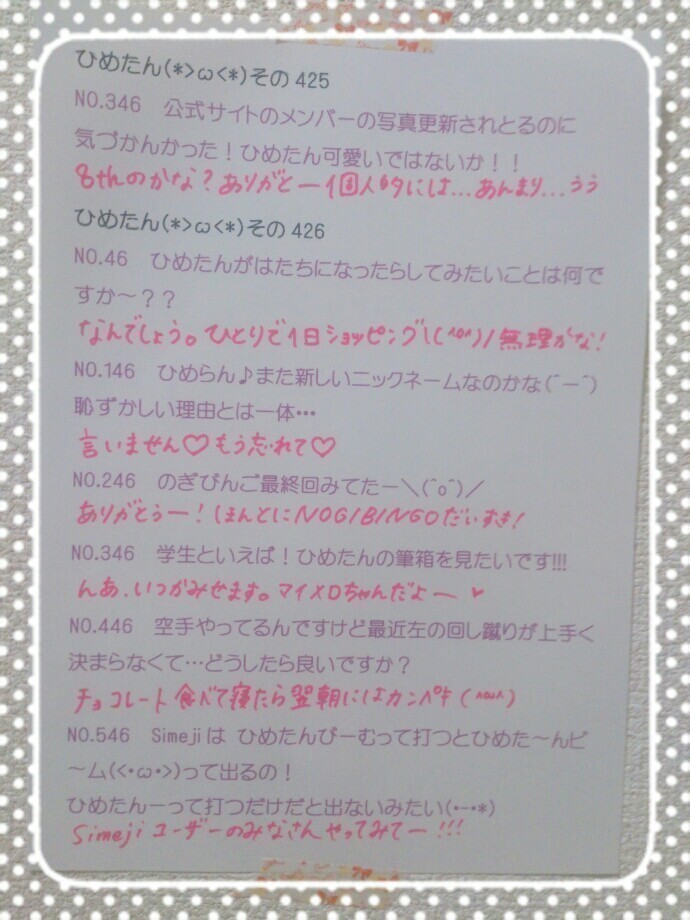 ひめたん(*>ω<*)その425
NO.346 公式サイトのメンバーの写真更新されとるのに
気づかんかった！ひめたん可愛いではないか！！
8thのかな？ありがとー1個人的には…あんまり…うぅ
ひめたん(*>ω<*)その426
NO.46 ひめたんがはたちになったらしてみたいことは何で
すか〜？？
なんでしょう。ひとりで1日ショッピング\(^o^)/無理かな！
NO.146 ひめらん♪また新しいニックネームなのかな(´ー`)
恥ずかしい理由とは一体…
言いません♡もう忘れて♡
NO.246 のぎびんご最終回みてたー＼(^o^)／
ありがとうー！ほんとにNOGIBINGOだいすき！
NO.346 学生といえば！ひめたんの筆箱を見たいです!!!
んあ、いつかみせます。マイメロちゃんだよー♥
NO.446 空手やってるんですけど最近左の回し蹴りが上手く
決まらなくて…どうしたら良いですか？
チョコレート食べて寝たら翌朝にはカンペキ(^ω^)
NO.546 Simejiは ひめたんびーむって打つとひめた〜んビ
〜ム(<・ω・>)って出るの！
ひめたんーって打つだけだと出ないみたい(・−・*)
Simejiユーザーのみなさんやってみてー!!!